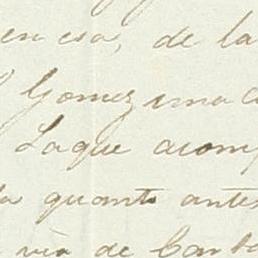 en esa, de la
Gomez una
Laque acom
quanto antes
via de Car